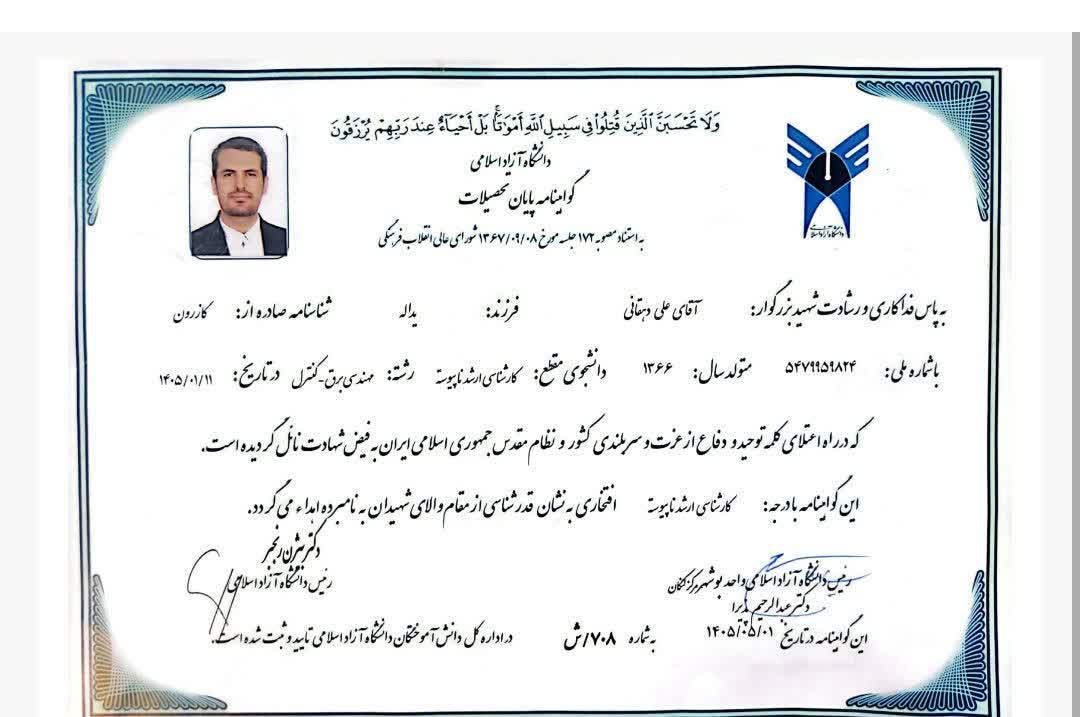 وَلَا تَحْسَبَنَّ الَّذِينَ قُتِلُوا فِي سَبِيلِ اللَّهِ أَمْوَاتًا بَلْ أَحْيَاءٌ عِندَ رَبِّهِمْ يُرْزَقُونَ
دانشگاه آزاد اسلامی
گواهینامه پایان تحصیلات
به استناد مصوبه ۱۷۲ جلسه مورخ ۱۳۶۷/۰۹/۰۸ شورای عالی انقلاب فرهنگی
دانشگاه آزاد اسلامی
به پاس فداکاری و رشادت شهید بزرگوار: آقای علی دهقانی فرزند: یداله شناسنامه صادره از: کازرون
با شماره ملی: ۵۴۷۹۹۵۹۸۲۴ متولد سال: ۱۳۶۶ دانشجوی مقطع: کارشناسی ارشد ناپیوسته رشته: مهندسی برق-کنترل در تاریخ: ۱۴۰۵/۰۱/۱۱
که در راه اعتلای کلمه توحید و دفاع از عزت و سربلندی کشور و نظام مقدس جمهوری اسلامی ایران به فیض شهادت نائل گردیده است.
این گواهینامه با درجه: کارشناسی ارشد ناپیوسته افتخاری به نشان قدرشناسی از مقام والای شهیدان به نامبرده اهداء می گردد.
دکتر بیژن رنجبر
رئیس دانشگاه آزاد اسلامی
رئیس دانشگاه آزاد اسلامی واحد بوشهر مرکز کنگان
دکتر عبدالرحیم پذیرا
این گواهینامه در تاریخ ۱۴۰۵/۰۵/۰۱ به شماره ۷۰۸/ش در اداره کل دانش آموختگان دانشگاه آزاد اسلامی تایید و ثبت شده است.